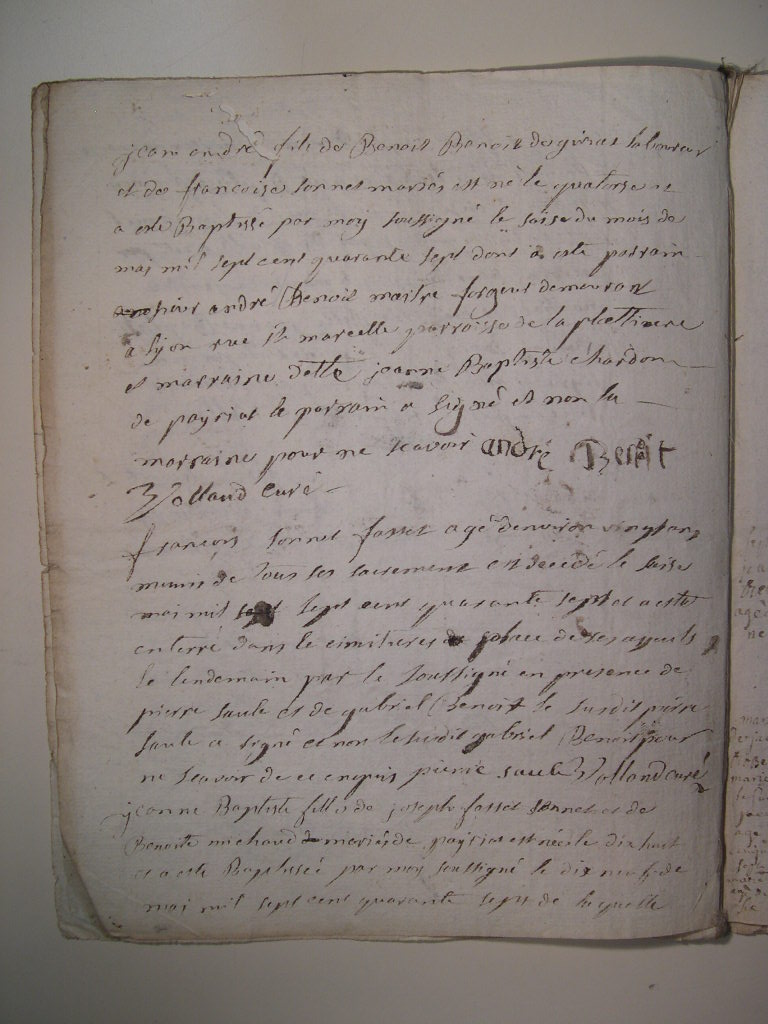 jean andré fils de Benoit Benoit de girias laboureur
et de francoise sonnet mariés est né le quatorse et
a esté Baptissé par moy soussigné le saise du mois de
mai mil sept cent quarante sept dont a esté parrain
sieur andré Benoit maitre forgeur demeurant
a lyon rue st marcelle parroisse de la plattiere
et marraine delle jeanne Baptiste chardon
de payriat le parrain a signé et non la
marraine pour ne scavoir andré Benoit
Volland curé
francois sonnet fasset agé denviron vingt ans
munis de tous ses sacrement est decedé le saise
mai mil sept cent quarante sept et a esté
enterré dans le cimitiere de ses
le lendemain par le soussigné en presence de
pierre saule et de gabriel Benoit le susdit pierre
saule a signé et non le susdit gabriel Benoit pour
ne scavoir de ce enquis pierre saule Volland curé
jeanne Baptiste fille de joseph fasset sonnet et de
Benoite michaud mariés de payriat est née le dix huit
et a esté Baptissée par moy soussigné le dix neuf de
mai mil sept cent quarante sept de laquelle